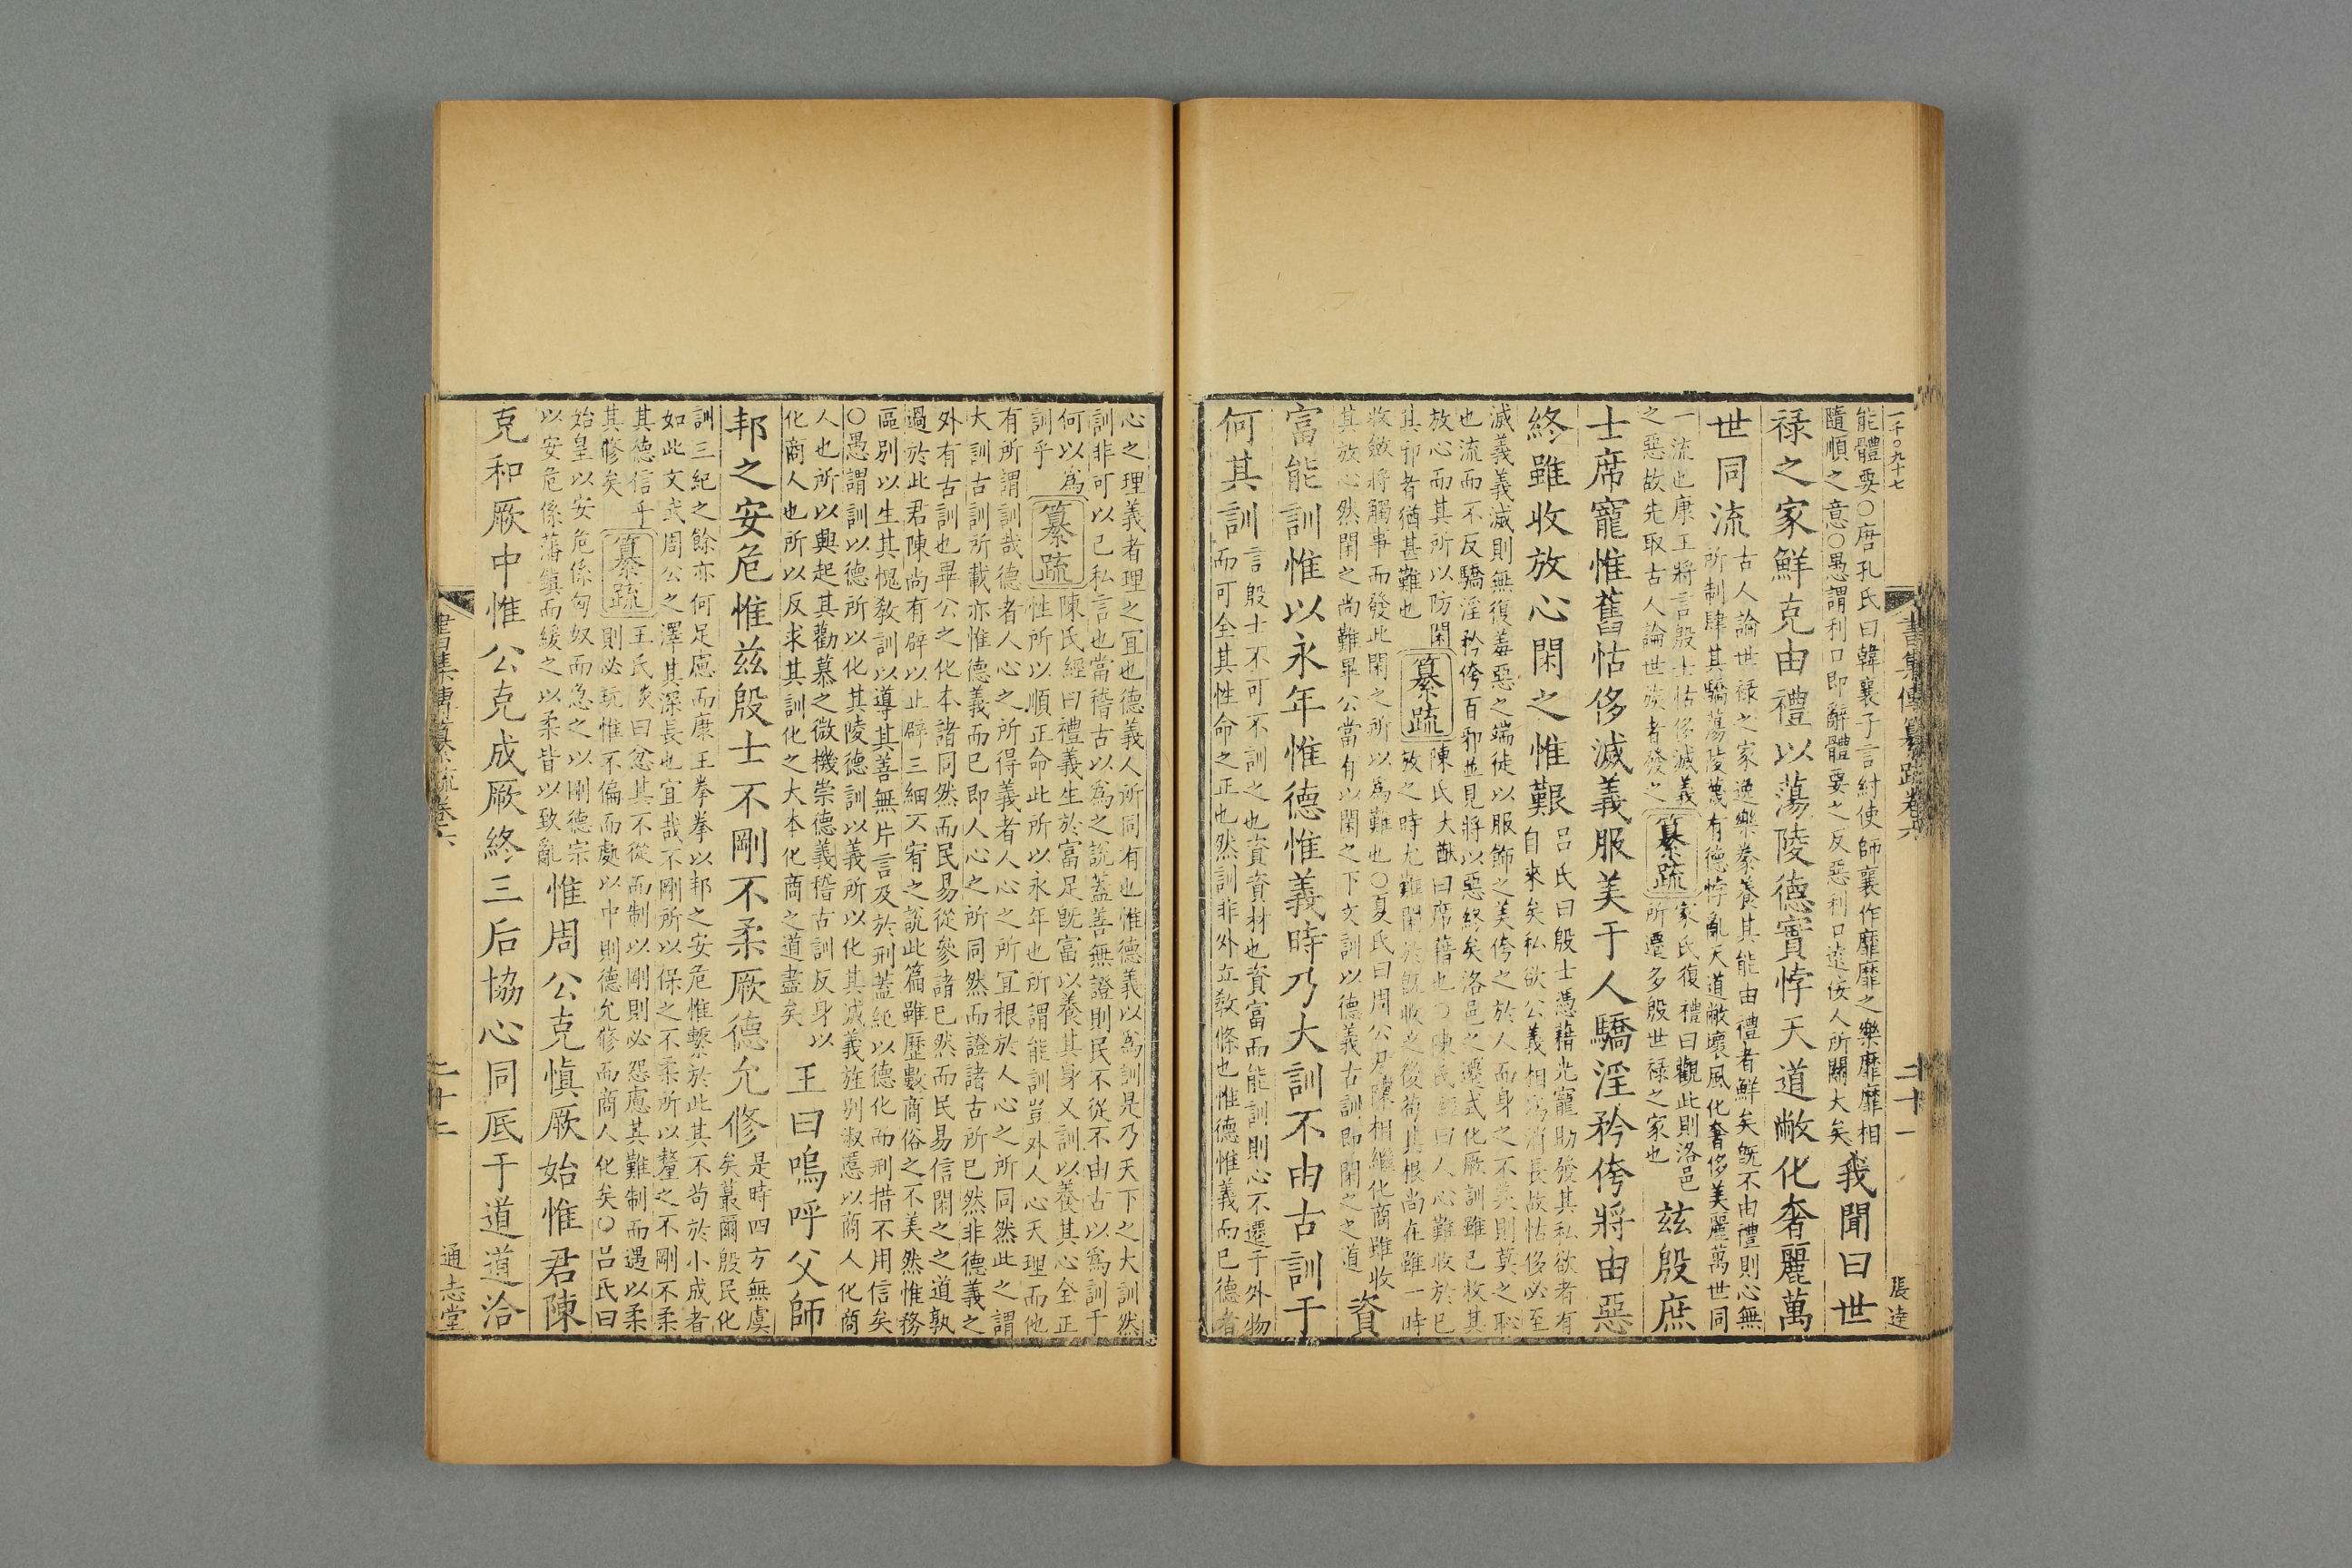 一千○九十七
書集傳纂疏卷六
二十一
張達
能體要○唐孔氏曰韓襄子言紂使師襄作靡靡之樂靡靡相
隨順之意○愚謂利口即辭體要之反惡利口遠佞人所關大矣
我聞曰世
祿之家鮮克由禮以蕩陵德實悖天道敝化奢麗萬
世同流
古人論世祿之家逸樂豢養其能由禮者鮮矣既不由禮則心無
所制肆其驕蕩陵蔑有德悖亂天道敝壞風化奢侈美麗萬世同
一流也康王將言殷士怙侈滅義
之惡故先取古人論世族者發之
纂疏
家氏復禮曰觀此則洛邑
所遷多殷世祿之家也
茲殷庶
士席寵惟舊怙侈滅義服美于人驕淫矜侉將由惡
終雖收放心閑之惟艱
呂氏曰殷士憑藉光寵助發其私欲者有
自來矣私欲公義相爲消長故怙侈必至
滅義義滅則無復羞惡之端徒以服飾之美侉之於人而身之不美則莫之恥
也流而不反驕淫矜侉百邪並見將以惡終矣洛邑之遷式化厥訓雖已收其
放心而其所以防閑
其邪者猶甚難也
纂疏
陳氏大猷曰席藉也○陳氏經曰人心難收於已
放之時尤難閑於既收之後苟其根尚在雖一時
收斂將觸事而發此閑之所以爲難也○夏氏曰周公君陳相繼化商雖收
其放心然閑之尚難畢公當有以閑之下文訓以德義古訓即閑之之道
資
富能訓惟以永年惟德惟義時乃大訓不由古訓于
何其訓
言殷士不可不訓之也資資材也資富而能訓則心不遷于外物
而可全其性命之正也然訓非外立敎條也惟德惟義而已德者
心之理義者理之宜也德義人所同有也惟德義以爲訓是乃天下之大訓然
訓非可以已私言也當稽古以爲之說蓋善無證則民不從不由古以爲訓于
何以爲
訓乎
纂疏
陳氏經曰禮義生於富足既富以養其身又訓以養其心全正
性所以順正命此所以永年也所謂能訓豈外人心天理而他
有所謂訓哉德者人心之所得義者人心之所宜根於人心之所同然此之謂
大訓古訓所載亦惟德義而已即人心之所同然而證諸古所已然非德義之
外有古訓也畢公之化本諸同然而民易從參諸已然而民易信閑之之道孰
過於此君陳尚有辟以止辟三細不宥之說此篇雖歷數商俗之不美然惟務
區別以生其愧敎訓以導其善無片言及於刑蓋純以德化而刑措不用信矣
○愚謂訓以德所以化其陵德訓以義所以化其滅義旌別淑慝以商人化商
人也所以興起其勸慕之微機崇德義稽古訓反身以
化商人也所以反求其訓化之大本化商之道盡矣
王曰嗚呼父師
邦之安危惟茲殷士不剛不柔厥德允修
是時四方無虞
矣蕞爾殷民化
訓三紀之餘亦何足慮而康王拳拳以邦之安危惟繫於此其不苟於小成者
如此文武周公之澤其深長也宜哉不剛所以保之不柔所以釐之不剛不柔
其德信乎
其修矣
纂疏
王氏炎曰忿其不從而制以剛則必怨慮其難制而遇以柔
則必玩惟不偏而處以中則德允修而商人化矣○呂氏曰
始皇以安危係匈奴而急之以剛德宗
以安危係藩鎭而緩之以柔皆以致亂
惟周公克愼厥始惟君陳
克和厥中惟公克成厥終三后協心同底于道道洽
書集傳纂疏卷六
二十二
通志堂